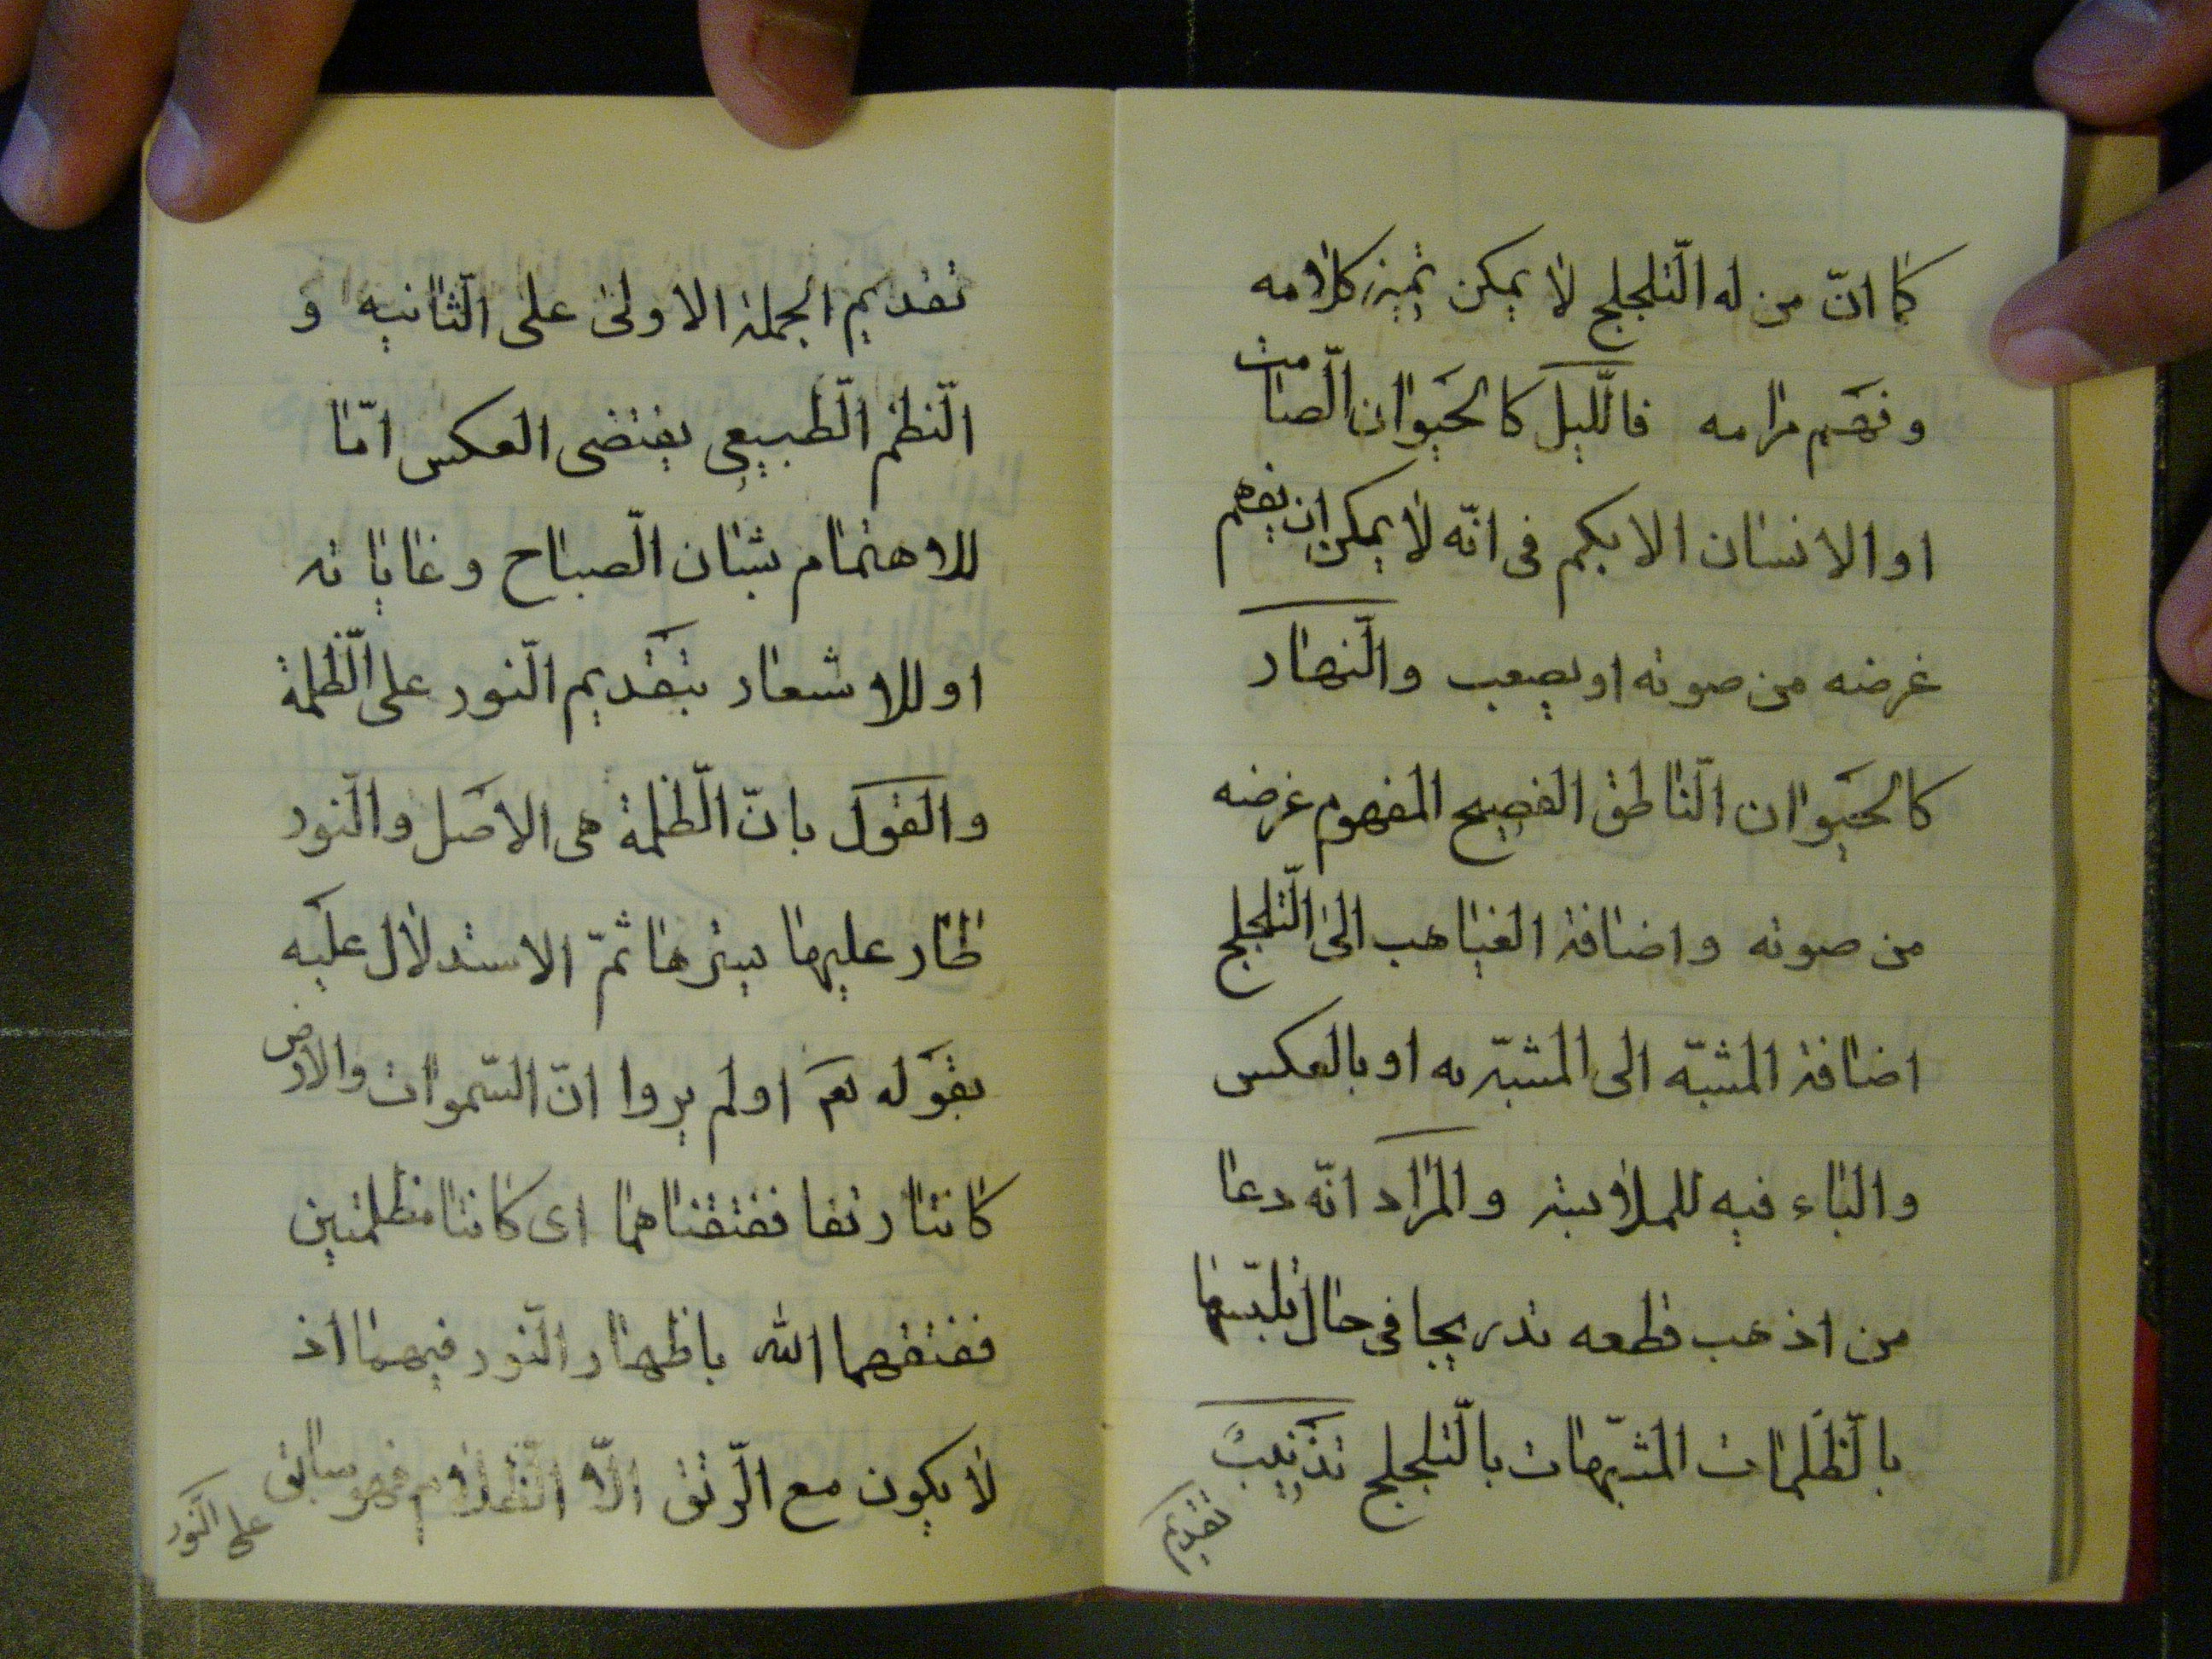 كما انّ من له التّلجلج لا يمكن تميز كلامه
و فهم مرامه فاللّيل كالحيوان الصّامت
او الانسان الابكم فى انّه لا يمكن ان يفهم
غرضه من صوته او يصعب والنّهار
كالحيوان النّاطق الفصيح المفهوم غرضه
من صوته و اضافة الغياهب الى التّلجلج
اضافة المشبّه الى المشبّه به او بالعكس
والباء فيه للملابسة والمراد انّه دعا
من اذهب قطعه تدريجا فى حال تلبّسها
بالظّلمات المشبّهات بالتّلجلج تذنيب
تقديم
تقديم الجملة الاولى على الثّانيه و
النّظم الطّبيعى يقتضى العكس امّا
للاهتمام بشان الصّباح و غاياته
او للاشعار بتقديم النّور على الظّلمة
والقول بانّ الظّلمة هى الاصل والنّور
طار عليها يسترها ثمّ الاستدلال عليه
بقوله تعَ اولم يروا انّ السّموات والارض
كانتا رتقا ففتقناهما اى كانتا مظلمتين
ففتقهما الله باظهار النّور فيهما اذ
لا يكون مع الرّتق الّا الظّلام فهو سابق
على النّور